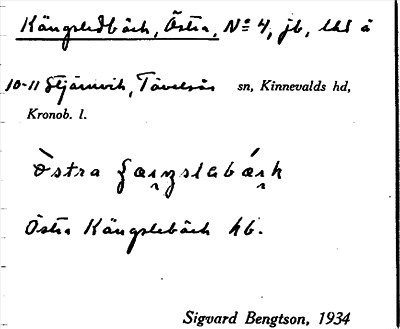 Kängsledbäck, Östra, No 4, jb, lht å
10-11 Stjärnvik, Tävelsås sn, Kinnevalds hd,
Kronob. l.
Östra Kängslebäck hb.
Sigvard Bengtson, 1934